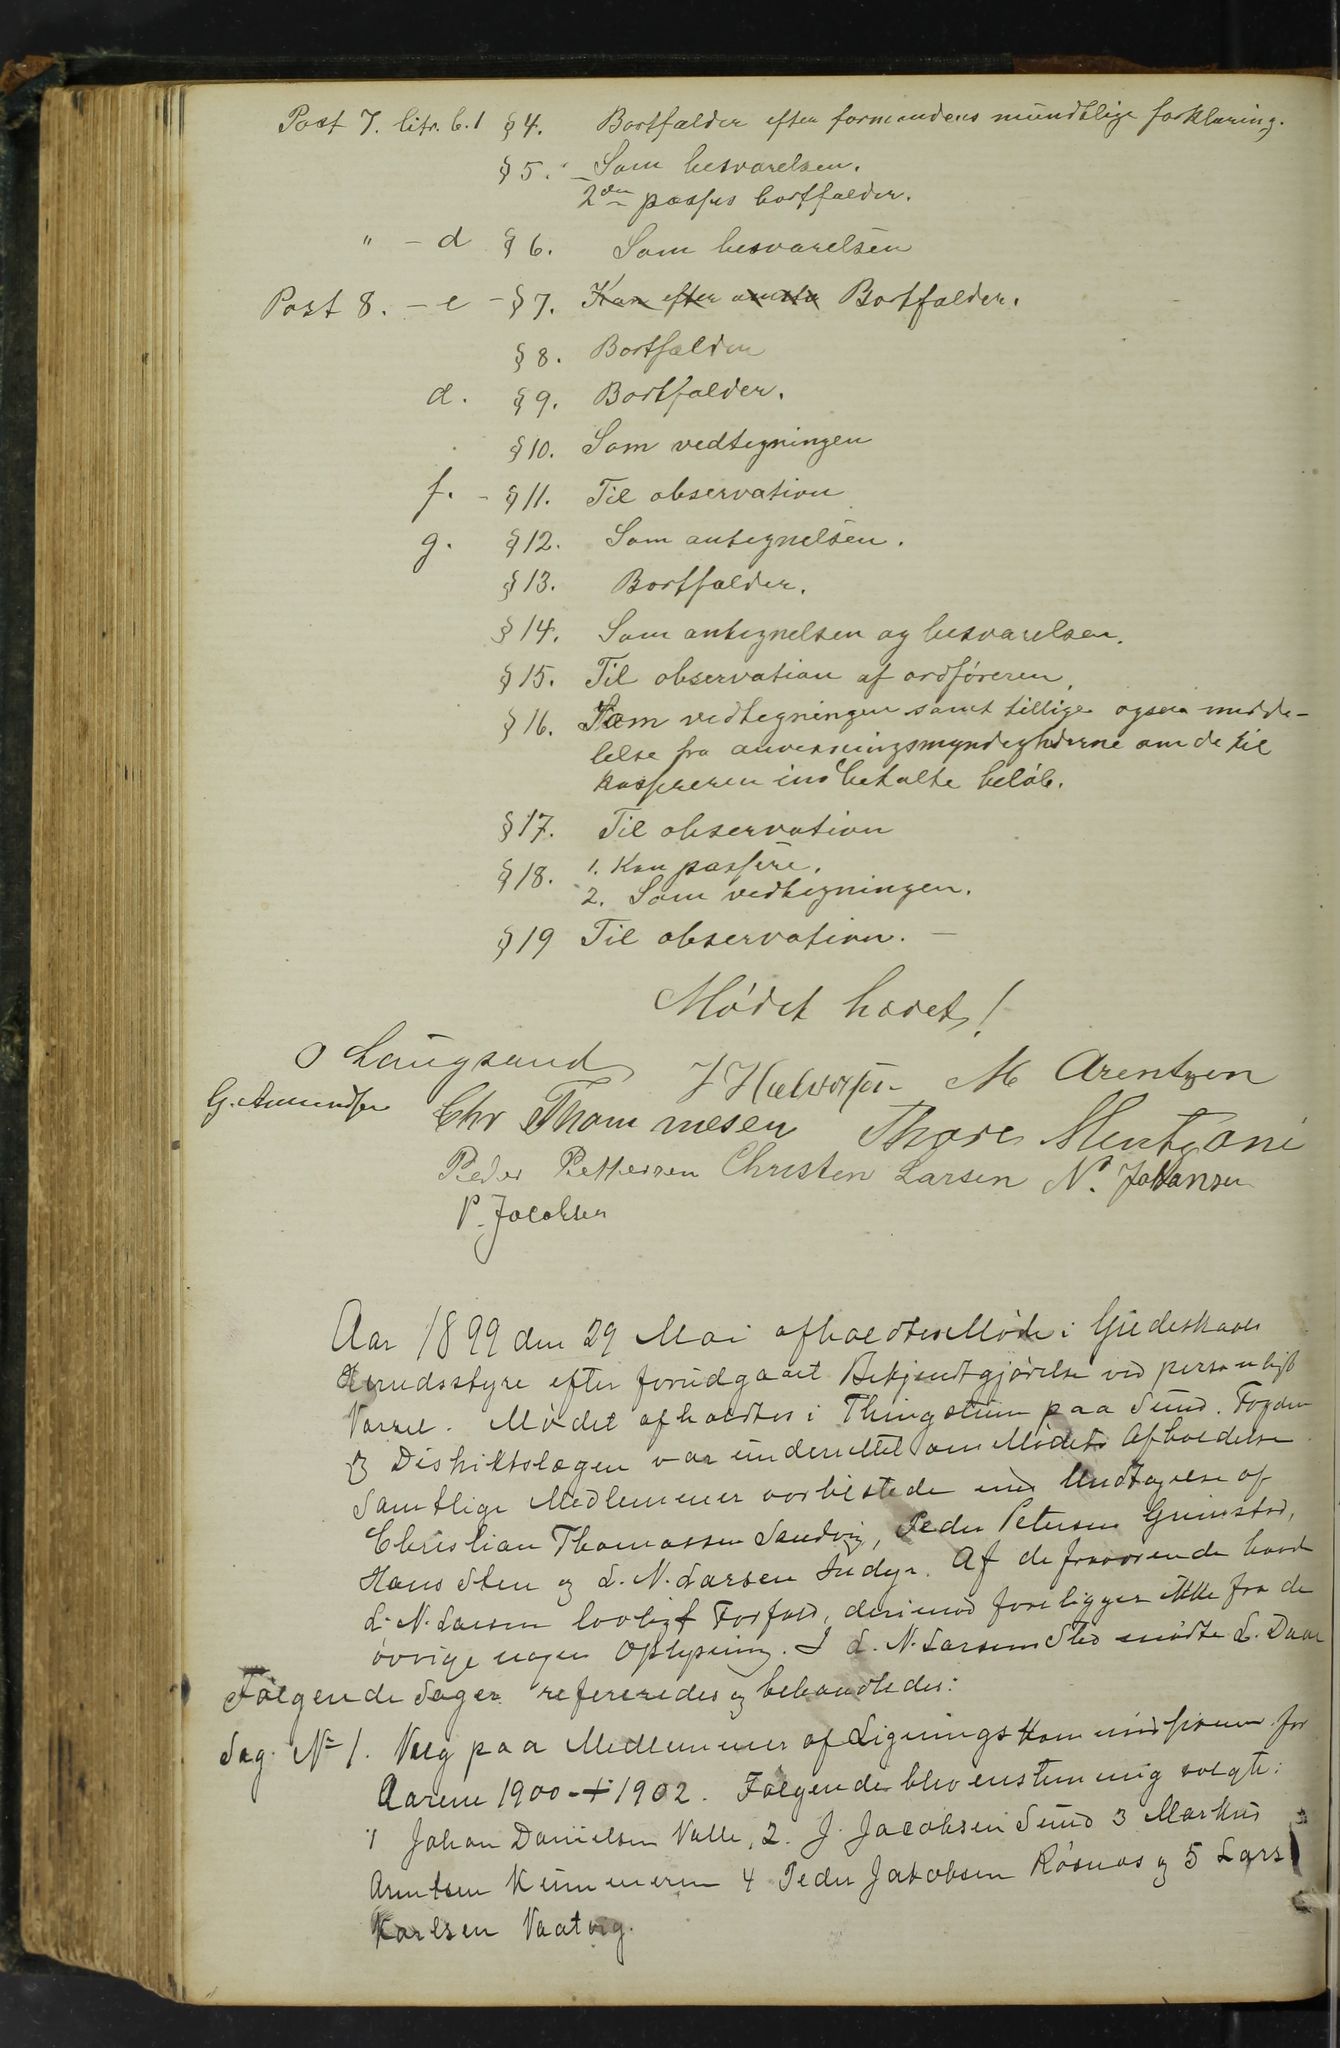 Post 7. litr. b. 1 § 4. Bortfalder efter formandens mundtlige forklaring.
§ 5. Som besvarelsen.
2den passus bortfalder.
" - d § 6. Som besvarelsen
Post 8. - c - § 7. Kan efter Bortfalder.
§ 8. Bortfalder
d. § 9. Bortfalder.
§ 10. Som vedtegningen
f. - § 11. Til observation
g. § 12. Som antegnelsen.
§ 13. Bortfalder.
§ 14. Som antegnelsen og besvarelsen.
§ 15. Til observation af ordføreren.
§ 16. Som vedtegningen samt tillige ogsaa medde-
lelse fra anvisningsmyndighederne om de til
kassereren indbetalte beløb.
§ 17. Til observation
§ 18. 1. Kan passere.
2. Som vedtegningen.
§ 19 Til observation. -
Mødet hævet!
O Langsand J Halvorsen M Arentzen
G. Amundsen Chr Thommesen Thore Mentzoni
Peder Pettersen Christen Larsen N. Johansen
P. Jacobsen
Aar 1899 den 29 Mai afholdtes Møde i Gildeskaals
Herredsstyre efter forudgaaet Bekjendtgjørelse ved personligt
Varsel. Mødet afholdtes i Thingstuen paa Sund. Fogden
og Distriktslægen var underrettet om Mødets Afholdelse
Samtlige Medlemmer var tilstede med Undtagelse af
Christian Thomassen Sandvig, Peder Petersen Grimstad,
Hans Sten og L. N. Larsen Indyr. Af de fraværende havde
L. N. Larsen lovligt Forfald, derimod foreligger ikke fra de
øvrige nogen Oplysning. I L. N. Larsens Sted mødte L. Daae
Følgende Sager refereredes og behandledes:
Sag No 1. Valg paa Medlemmer af Ligningskommissionen for
Aarene 1900 - + 1902. Følgende blev enstemmig valgte:
1 Johan Danielsen Valle, 2. J. Jacobsen Sund 3 Markus
Arentsen Kummeren 4 Peder Jakobsen Røsnes og 5 Lars
Karlsen Vaatvig.